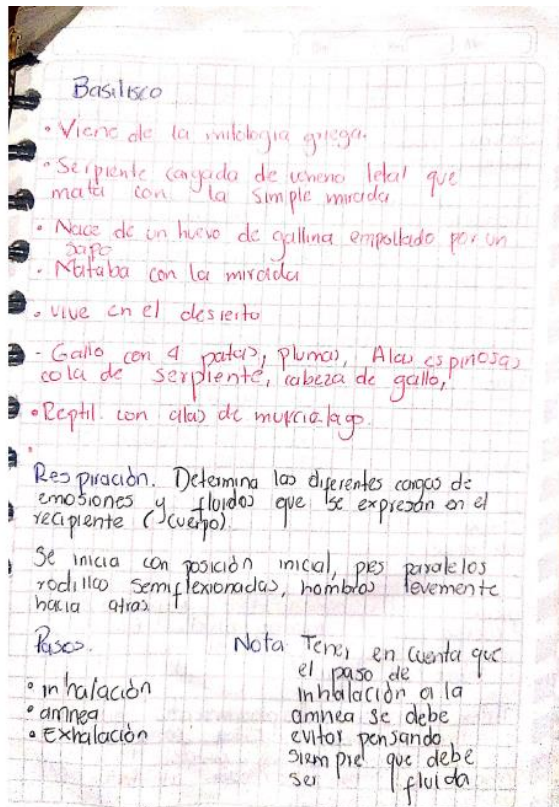 Basilisco
• Viene de la mitologia griega.
• Serpiente cargada de veneno letal que
mata con la simple mirada
• Nace de un huevo de gallina empollado por un
sapo
• Mataba con la mirada
• vive en el desierto
- Gallo con 4 patas, plumas, Alas espinosas
cola de serpiente, cabeza de gallo,
• Reptil con alas de murcielago.
Respiración. Determina las diferentes cargas de
emosiones y fluidos que se expresan en el
recipiente (cuerpo).
Se inicia con posición inicial, pies paralelos
rodillas semiflexionadas, hombros levemente
hacia atras
Pasos.
• inhalación
• amnea
• Exhalación
Nota Tener en cuenta que
el paso de
inhalación a la
amnea se debe
evitar pensando
siempre que debe
ser fluida